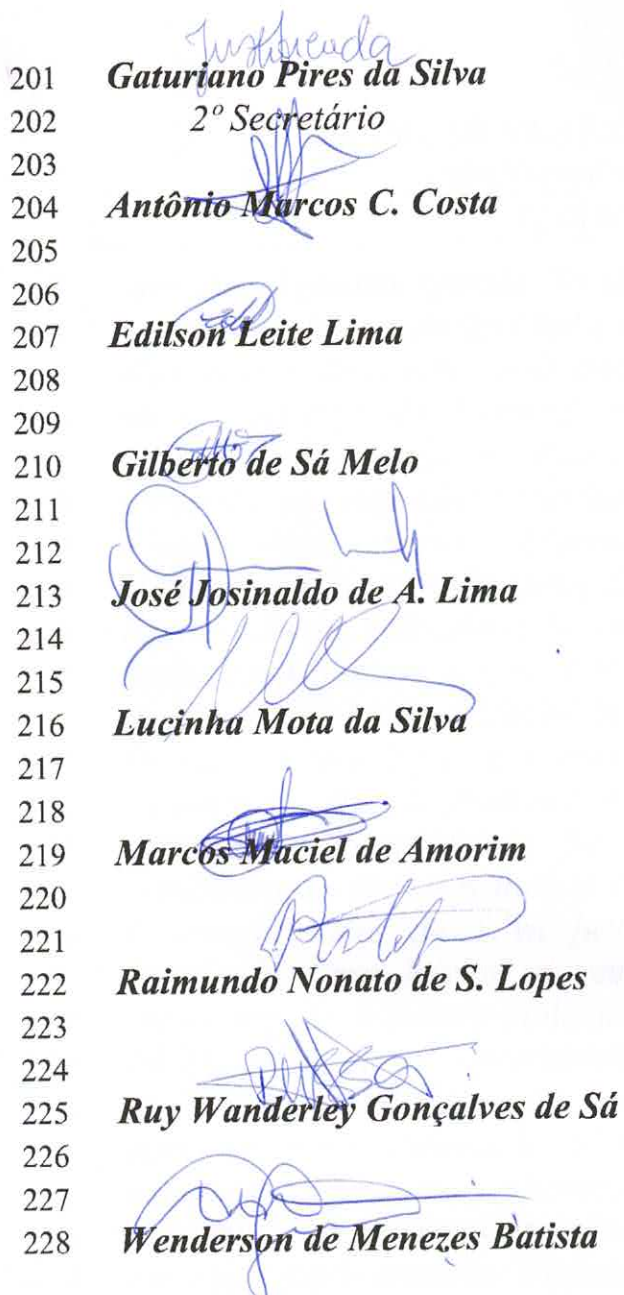 Justificada
201 Gaturiano Pires da Silva
202 2º Secretário
203
204 Antônio Marcos C. Costa
205
206
207 Edilson Leite Lima
208
209
210 Gilberto de Sá Melo
211
212
213 José Josinaldo de A. Lima
214
215
216 Lucinha Mota da Silva
217
218
219 Marcos Maciel de Amorim
220
221
222 Raimundo Nonato de S. Lopes
223
224
225 Ruy Wanderley Gonçalves de Sá
226
227
228 Wenderson de Menezes Batista